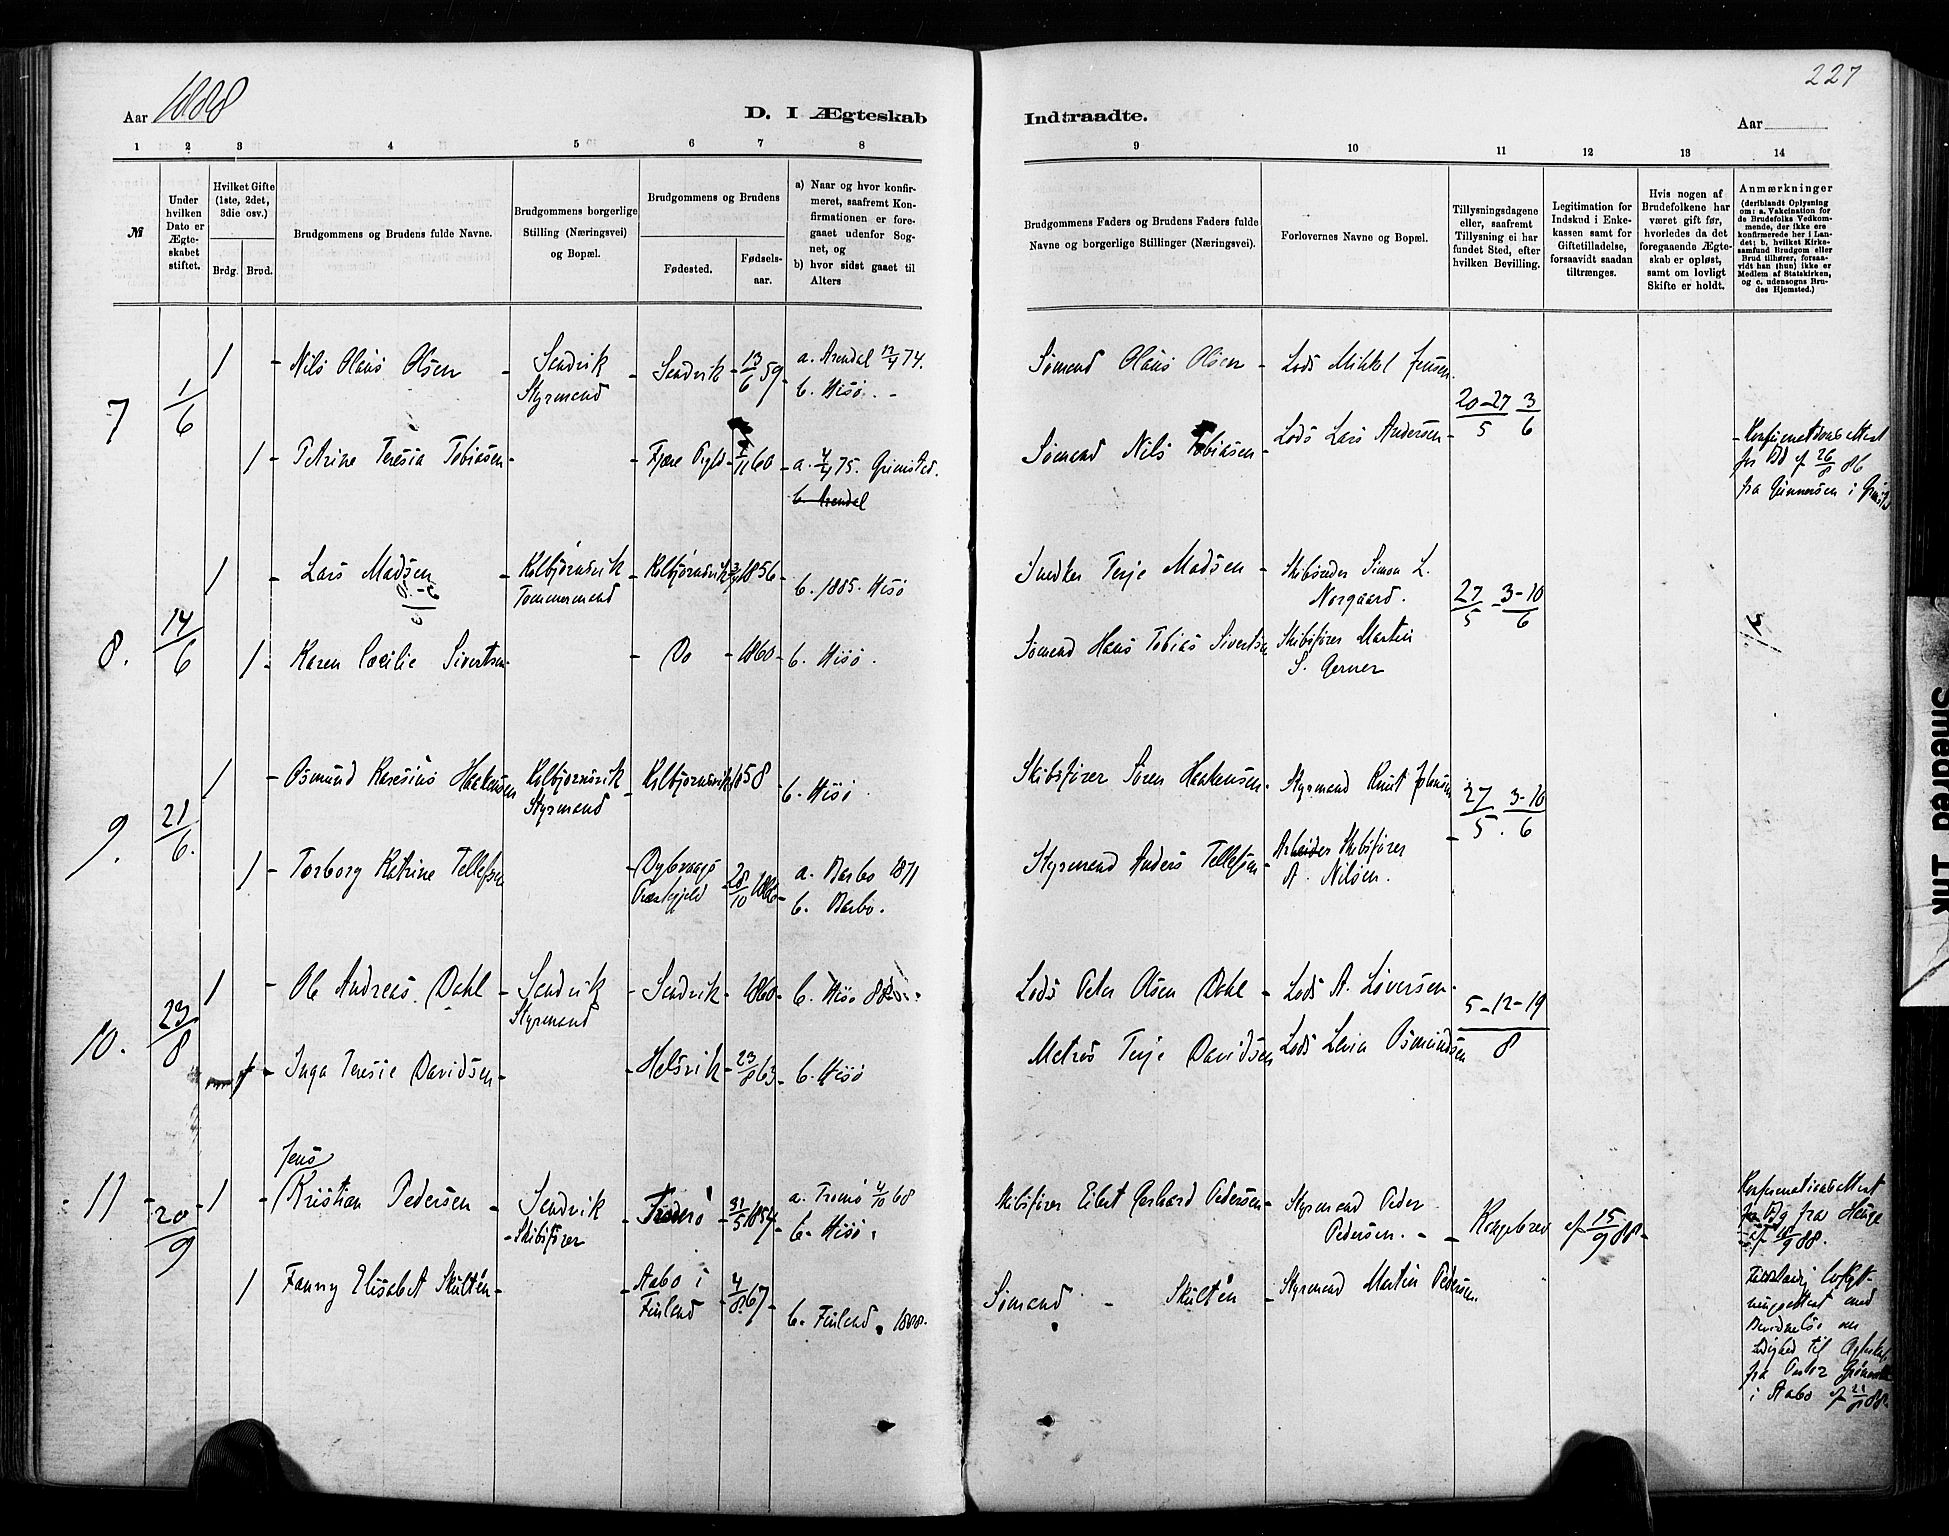 227
Aar 1888
D. I Ægteskab
Indtraadte.
Aar
1 2 3 4 5 6 7 8 9 10 11 12 13 14
№
Under hvilken Dato er Ægteskabet stiftet.
Hvilket Gifte (1ste, 2det, 3die osv.)
Brdg. Brud.
Brudgommens og Brudens fulde Navne.
Brudgommens borgerlige Stilling (Næringsvei) og Bopæl.
Brudgommens og Brudens
Fødested.
Fødselsaar.
a) Naar og hvor konfirmeret, saafremt Konfirmationen er foregaaet udenfor Sognet, og
b) hvor sidst gaaet til Alters
Brudgommens Faders og Brudens Faders fulde Navne og borgerlige Stillinger (Næringsvei).
Forlovernes Navne og Bopæl.
Tillysningsdagene eller, saafremt Tillysning ei har fundet Sted, efter hvilken Bevilling.
Legitimation for Indskud i Enkekassen samt for Giftetilladelse, forsaavidt saadan tiltrænges.
Hvis nogen af Brudefolkene har været gift før, hvorledes da det foregaaende Ægteskab er opløst, samt om lovligt Skifte er holdt.
Anmærkninger (deriblandt Oplysning om: a. Vakcination for de Brudefolks Vedkommende, der ikke ere konfirmerede her i Landet; b. hvilket Kirkesamfund Brudgom eller Brud tilhører, forsaavidt han (hun) ikke er Medlem af Statskirken, og c. udensogns Brudes Hjemsted.)
7 1/6 1 Nils Olaus Olsen Sandvik Styrmand Sandvik 13/6 59 a. Arendal 74. b. Hisø. Sømand Olaus Olsen Lods Mikkel Jensen 20-27/5 3/6
1 Petrine Teresia Tobiasen Fjære 60 a. 75. Grimstad. b. Arendal Sømand Nils Tobiasen Lods Lars Andersen Konfirmationsattest for Bd af 26/8 86 fra Gunnersen i
8. 14/6 1 Lars Madsen Kolbjørnsvik Tømmermand Kolbjørnsvik 1856 b. 1885. Hisø Snedker Terje Madsen Skibsreder Simon L. Norgaard. 27/5 - 3-10/6
1 Karen Cæcilie Sivertsen Do 1860 b. Hisø. Sømand Hans Tobias Sivertsen Skibsfører Martin S. Gerner
9. 21/6. 1 Osmund Haakensen Kolbjørnsvik Styrmand Kolbjørnsvik 1858 b. Hisø Skibsfører Søren Haakensen Styrmand Knut Johnsen 27/5. 3-10/6
1 Torborg Katrine Tellefsen Dybvaags Præstegjeld 28/10 a. Barbo 1871 b. Barbo. Styrmand Anders Tellefsen Skibsfører A. Nilsen.
10. 23/8 1 Ole Andreas Dahl Sandvik Styrmand Sandvik 1860 b. Hisø Lods Peter Olsen Dahl Lods A. Siversen 5-12-19/8
Inga Teresie Davidsen Helsvik 23/8 63 b. Hisø Matros Terje Davidsen Lods Osmundsen
11 20/9 1 Jens Kristian Pedersen Sandvik Skibsfører Tromø 31/5 1854 a. Tromø 68 b. Hisø. Skibsfører Eibert Gerhard Pedersen Styrmand Peder Pedersen. Kongebrev af 15/9 88 Konfirmationsattest for Bdg fra
1 Fanny Elisabet Skultén Aabo i Finland 4/8 67 b. Finland 1888. Sømand Skultén Styrmand Martin Pedersen om Ledighed til fra i Aabo af 21/8 88
Smedrød Trk